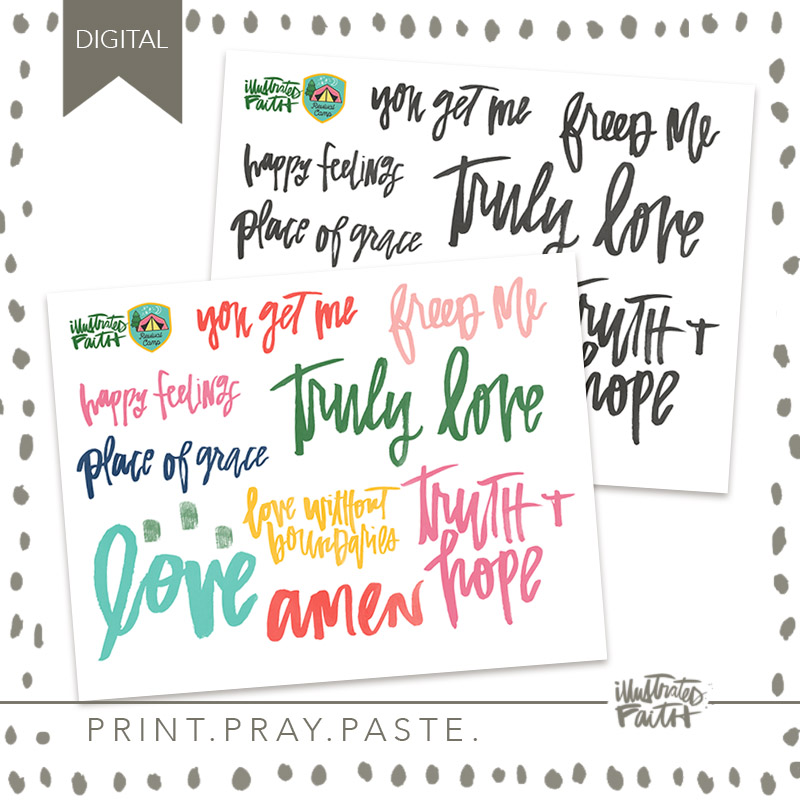 DIGITAL
illustrated
FAITH
Revival
Camp
you get me
freed Me
happy feelings
Truly love
place of grace
TruTH +
hope
illustrated
FAITH
Revival
Camp
you get me
freed Me
happy feelings
Truly love
place of grace
love without
boundaries
TruTH +
hope
love
amen
illustrated
FAITH
PRINT.PRAY.PASTE.